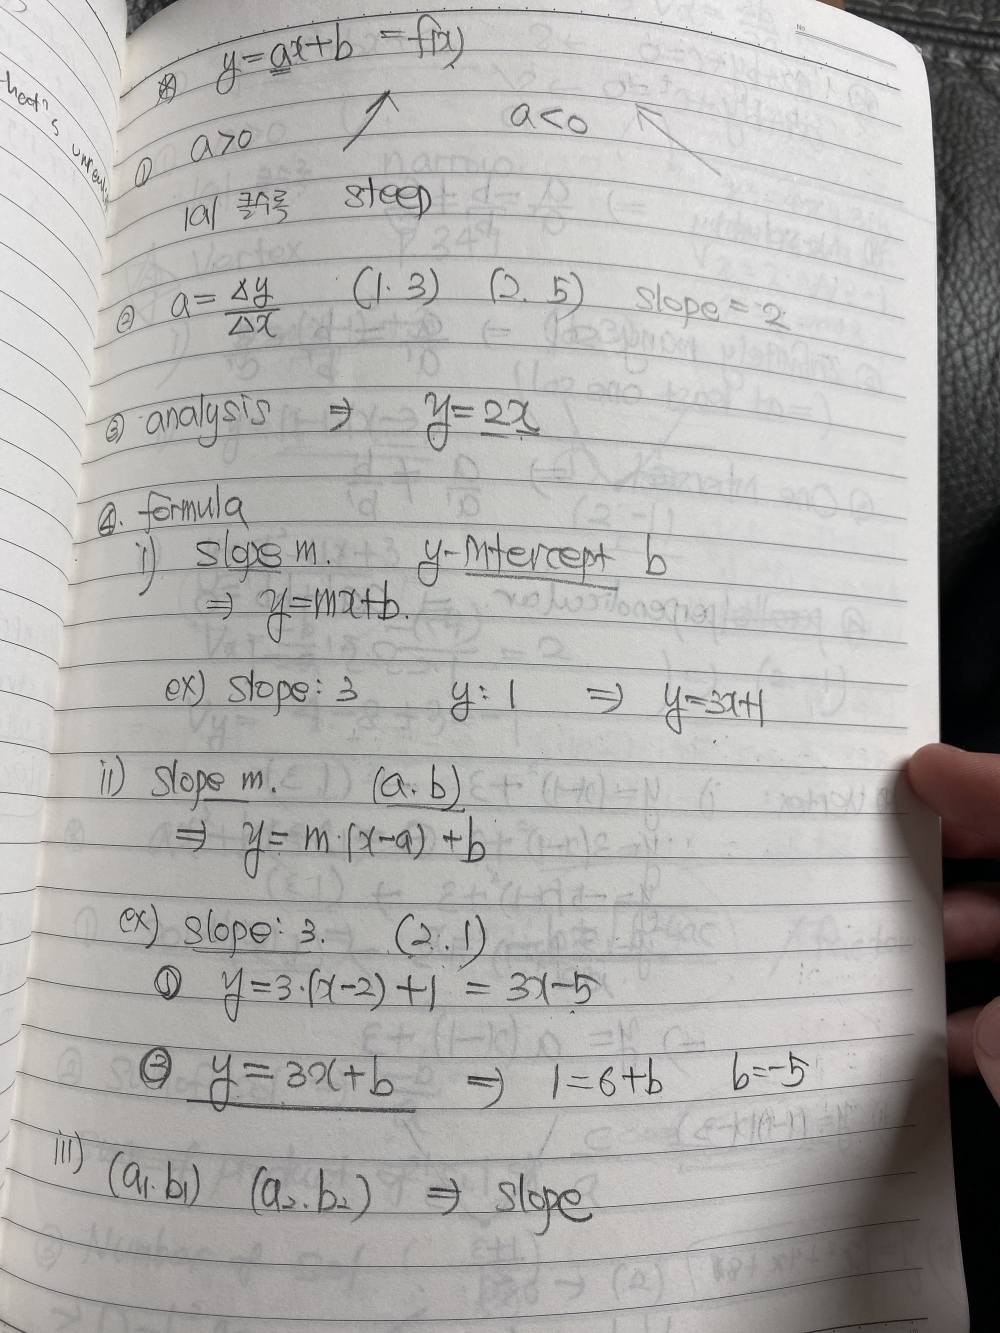 ※ y=ax+b =f(x)
① a>0 ↗ a<0 ↖
|a| 클수록 steep
② a= Δy/Δx (1.3) (2.5) slope=2
③ analysis ⇒ y=2x
④. formula
i) slope m. y-intercept b
⇒ y=mx+b.
ex) slope: 3 y: 1 ⇒ y=3x+1
ii) slope m. (a.b)
⇒ y= m·(x-a)+b
ex) slope: 3. (2.1)
① y=3·(x-2)+1 = 3x-5
② y=3x+b ⇒ 1=6+b b=-5
iii) (a₁.b₁) (a₂.b₂) ⇒ slope